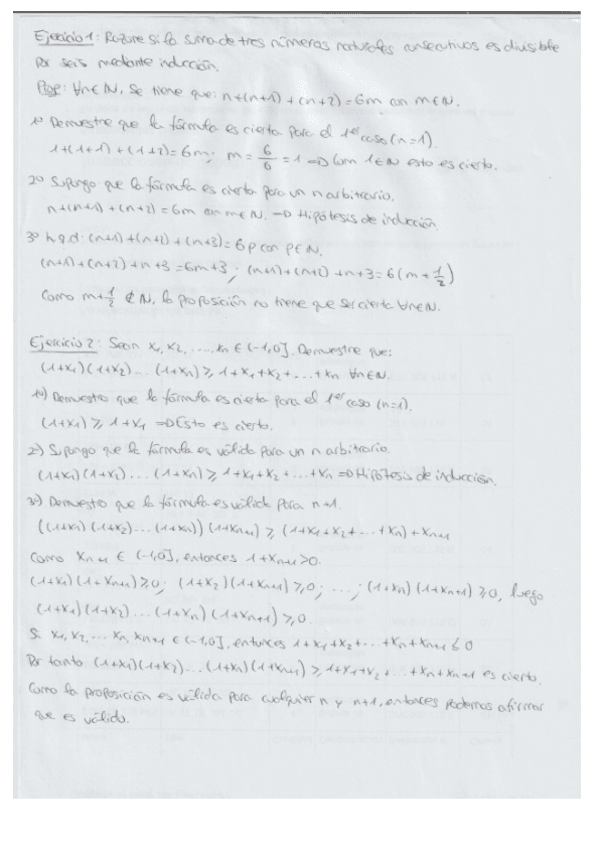 Ejercicio 1: Razone si la suma de tres números naturales consecutivos es divisible
por seis mediante inducción.
Prop: ∀n∈N, se tiene que: n+(n+1)+(n+2)=6m con m∈N.
1º Demuestre que la fórmula es cierta para el 1er caso (n=1).
1+(1+1)+(1+2)=6m; m=6/6=1 ⇒ Como 1∈N esto es cierto.
2º Supongo que la fórmula es cierta para un n arbitrario.
n+(n+1)+(n+2)=6m con m∈N. ⇒ Hipótesis de inducción.
3º h.q.d: (n+1)+(n+2)+(n+3)=6p con p∈N.
(n+1)+(n+2)+n+3=6m+3; (n+1)+(n+2)+n+3=6(m+1/2)
Como m+1/2 ∉ N, la proposición no tiene que ser cierta ∀n∈N.
Ejercicio 2: Sean x1, x2, ..., xn ∈ (-1,0]. Demuestre que:
(1+x1)(1+x2)...(1+xn) ≥ 1+x1+x2+...+xn ∀n∈N.
1º) Demuestro que la fórmula es cierta para el 1er caso (n=1).
(1+x1) ≥ 1+x1 ⇒ Esto es cierto.
2º) Supongo que la fórmula es válida para un n arbitrario.
(1+x1)(1+x1)...(1+xn) ≥ 1+x1+x2+...+xn ⇒ Hipótesis de inducción.
3º) Demuestro que la fórmula es válida para n+1.
((1+x1)(1+x2)...(1+xn))(1+xn+1) ≥ (1+x1+x2+...+xn)+xn+1
Como xn+1 ∈ (-1,0], entonces 1+xn+1>0.
(1+x1)(1+xn+1)≥0; (1+x2)(1+xn+1)≥0; ...; (1+xn)(1+xn+1)≥0, luego
(1+x1)(1+x2)...(1+xn)(1+xn+1)≥0.
Si x1, x2, ... xn, xn+1 ∈ (-1,0], entonces 1+x1+x2+...+xn+xn+1 ≤ 0
Por tanto (1+x1)(1+x2)...(1+xn)(1+xn+1) ≥ 1+x1+x2+...+xn+xn+1 es cierto.
Como la proposición es válida para cualquier n y n+1, entonces podemos afirmar
que es válido.